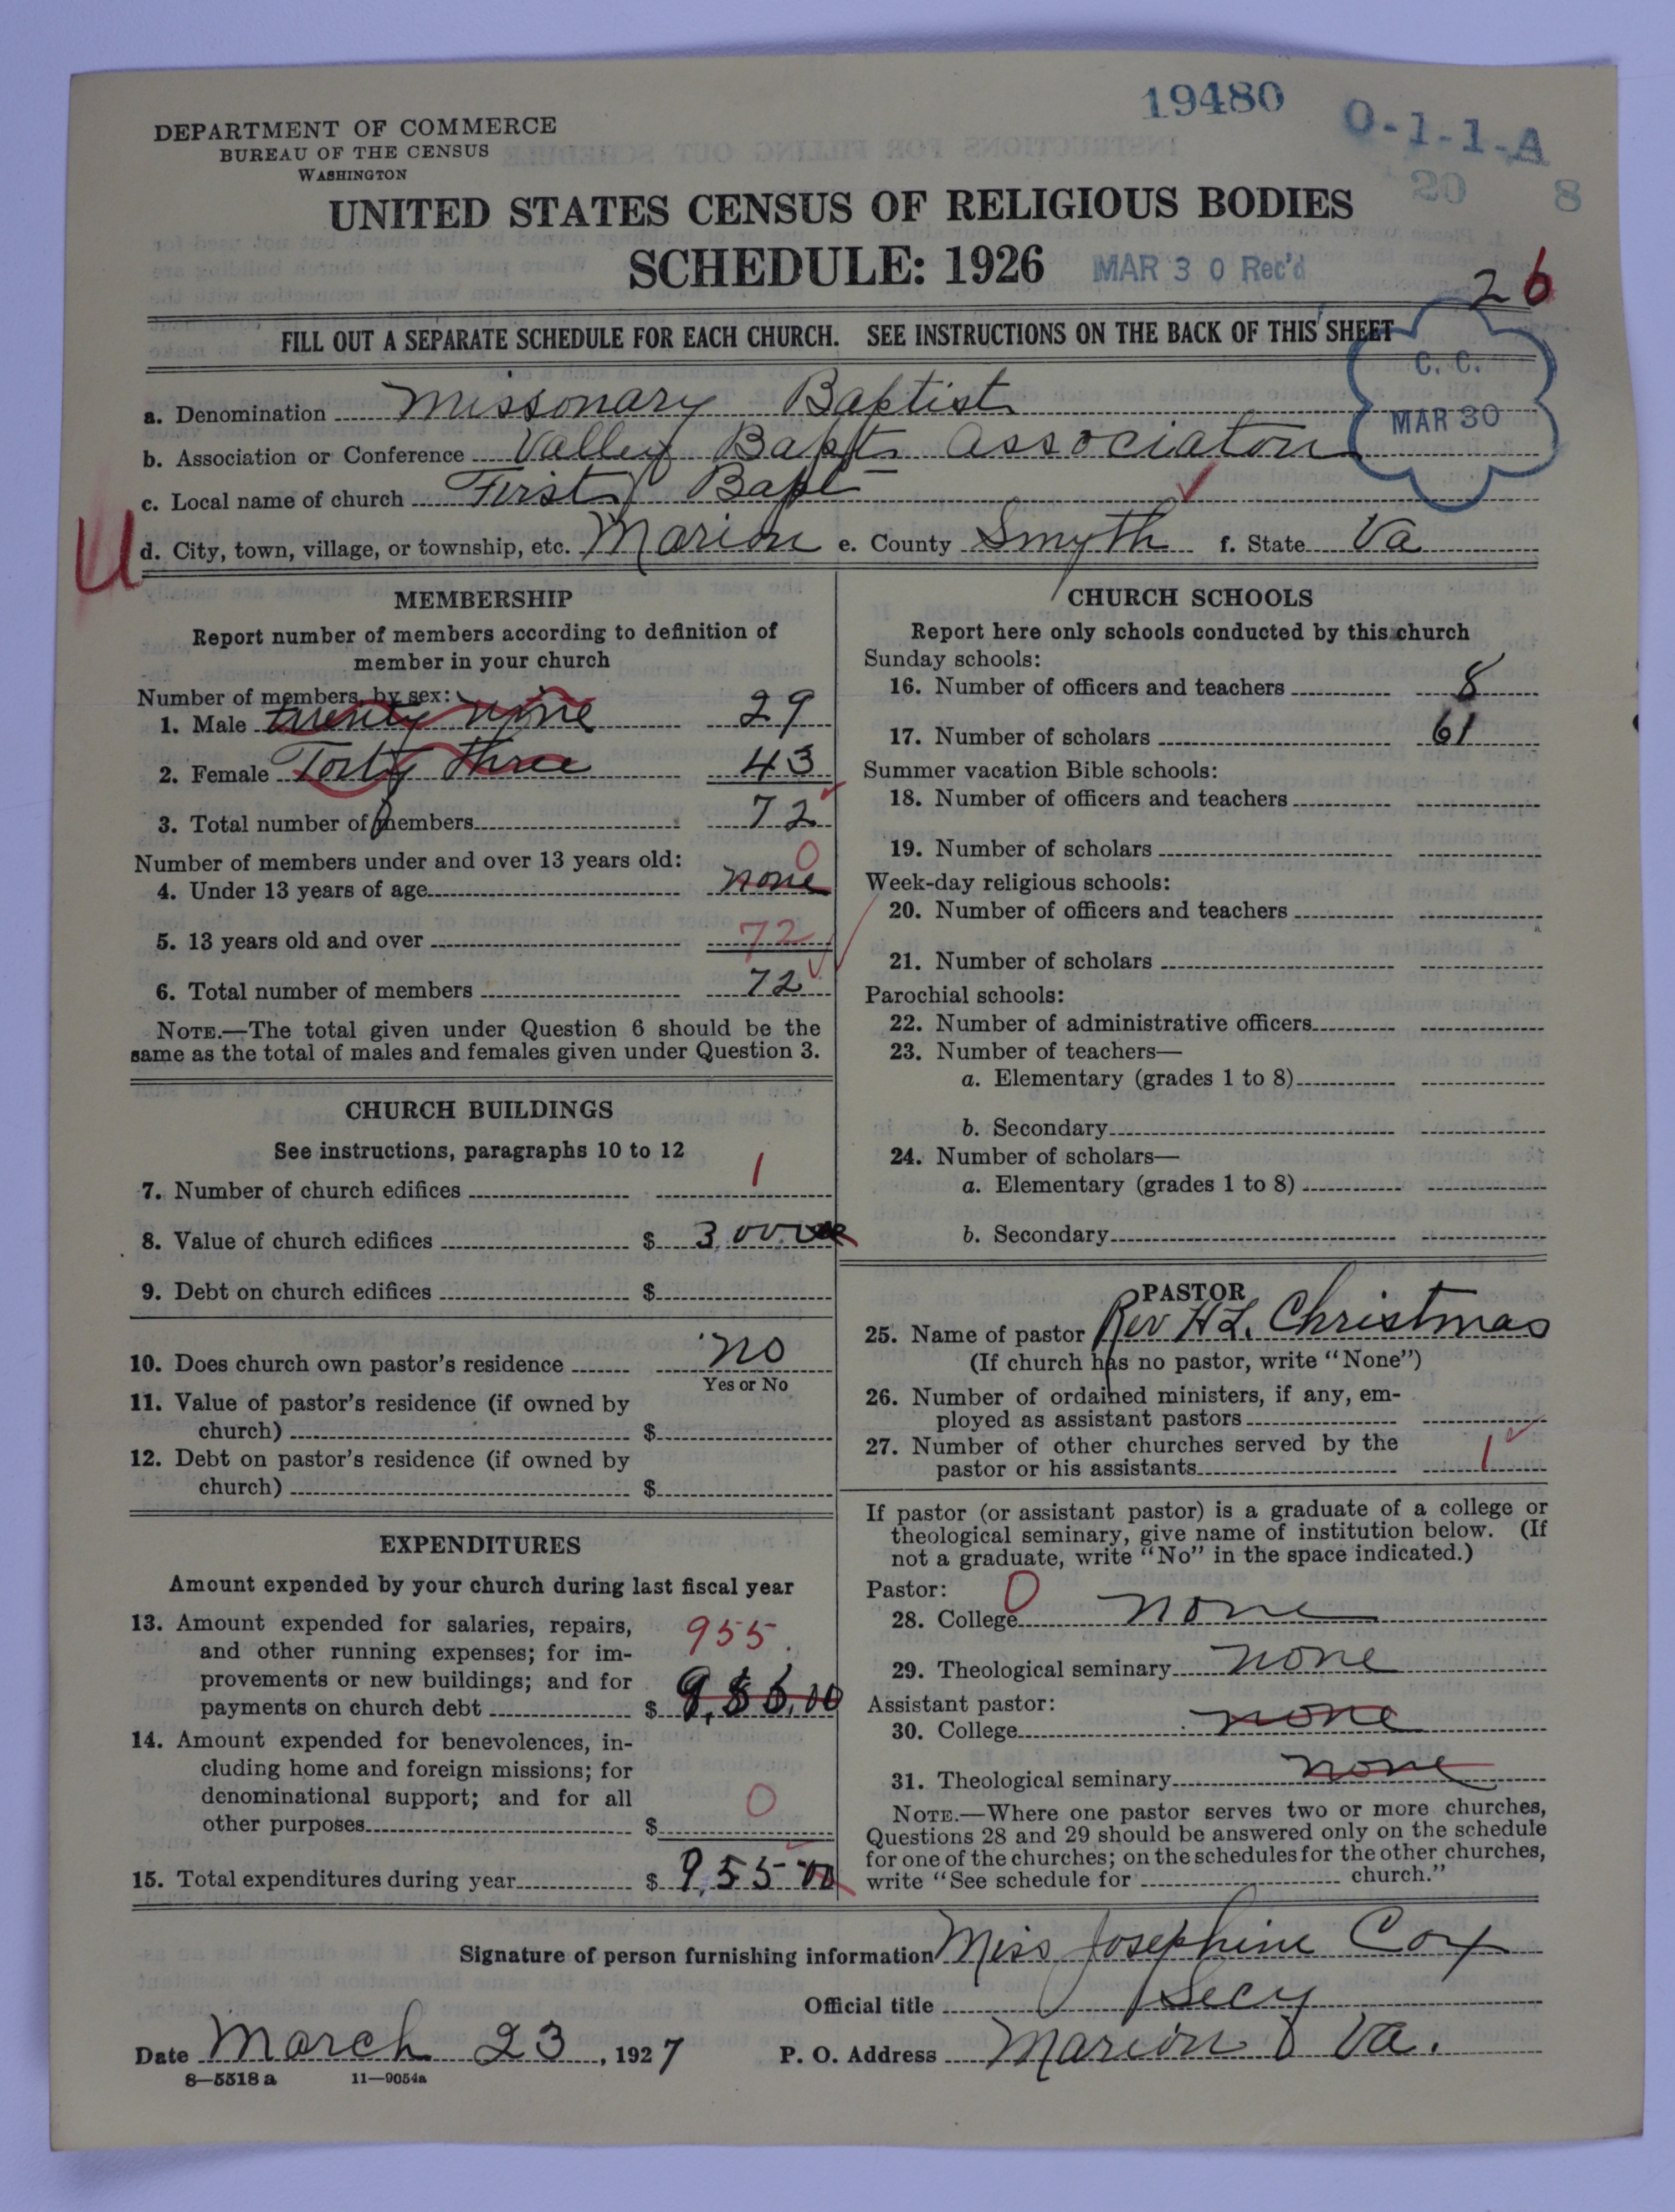 19480
O-1-1-A
DEPARTMENT OF COMMERCE
BUREAU OF THE CENSUS
WASHINGTON
20 8
UNITED STATES CENSUS OF RELIGIOUS BODIES
SCHEDULE: 1926 MAR 30 Rec'd
26
FILL OUT A SEPARATE SCHEDULE FOR EACH CHURCH. SEE INSTRUCTIONS ON THE BACK OF THIS SHEET
C. C.
MAR 30
a. Denomination Missonary Baptist
b. Association or Conference Valley Bapt. Associaton
c. Local name of church First Bapt
U
d. City, town, village, or township, etc. Marion e. County Smyth f. State Va
MEMBERSHIP
Report number of members according to definition of
member in your church
Number of members by sex:
1. Male twenty nine 29
2. Female Forty three 43
3. Total number of members 72
Number of members under and over 13 years old: 0
4. Under 13 years of age none
5. 13 years old and over 72
6. Total number of members 72
NOTE.—The total given under Question 6 should be the
same as the total of males and females given under Question 3.
CHURCH BUILDINGS
See instructions, paragraphs 10 to 12
7. Number of church edifices 1
8. Value of church edifices $
9. Debt on church edifices $
10. Does church own pastor's residence no
Yes or No
11. Value of pastor's residence (if owned by
church) $
12. Debt on pastor's residence (if owned by
church) $
EXPENDITURES
Amount expended by your church during last fiscal year
13. Amount expended for salaries, repairs,
and other running expenses; for im- 955.
provements or new buildings; and for
payments on church debt $
14. Amount expended for benevolences, in-
cluding home and foreign missions; for
denominational support; and for all
other purposes $ 0
15. Total expenditures during year $ 955 00
CHURCH SCHOOLS
Report here only schools conducted by this church
Sunday schools:
16. Number of officers and teachers 8
17. Number of scholars 61
Summer vacation Bible schools:
18. Number of officers and teachers
19. Number of scholars
Week-day religious schools:
20. Number of officers and teachers
21. Number of scholars
Parochial schools:
22. Number of administrative officers
23. Number of teachers—
a. Elementary (grades 1 to 8)
b. Secondary
24. Number of scholars—
a. Elementary (grades 1 to 8)
b. Secondary
PASTOR
25. Name of pastor Rev H L. Christmas
(If church has no pastor, write "None")
26. Number of ordained ministers, if any, em-
ployed as assistant pastors
27. Number of other churches served by the
pastor or his assistants 1
If pastor (or assistant pastor) is a graduate of a college or
theological seminary, give name of institution below. (If
not a graduate, write "No" in the space indicated.)
Pastor: 0
28. College none
29. Theological seminary none
Assistant pastor:
30. College none
31. Theological seminary none
NOTE.—Where one pastor serves two or more churches,
Questions 28 and 29 should be answered only on the schedule
for one of the churches; on the schedules for the other churches,
write "See schedule for church."
Signature of person furnishing information Miss Josephine Cox
Official title Secy
Date March 23, 1927 P. O. Address Marion Va.
8—5518 a 11—9054a